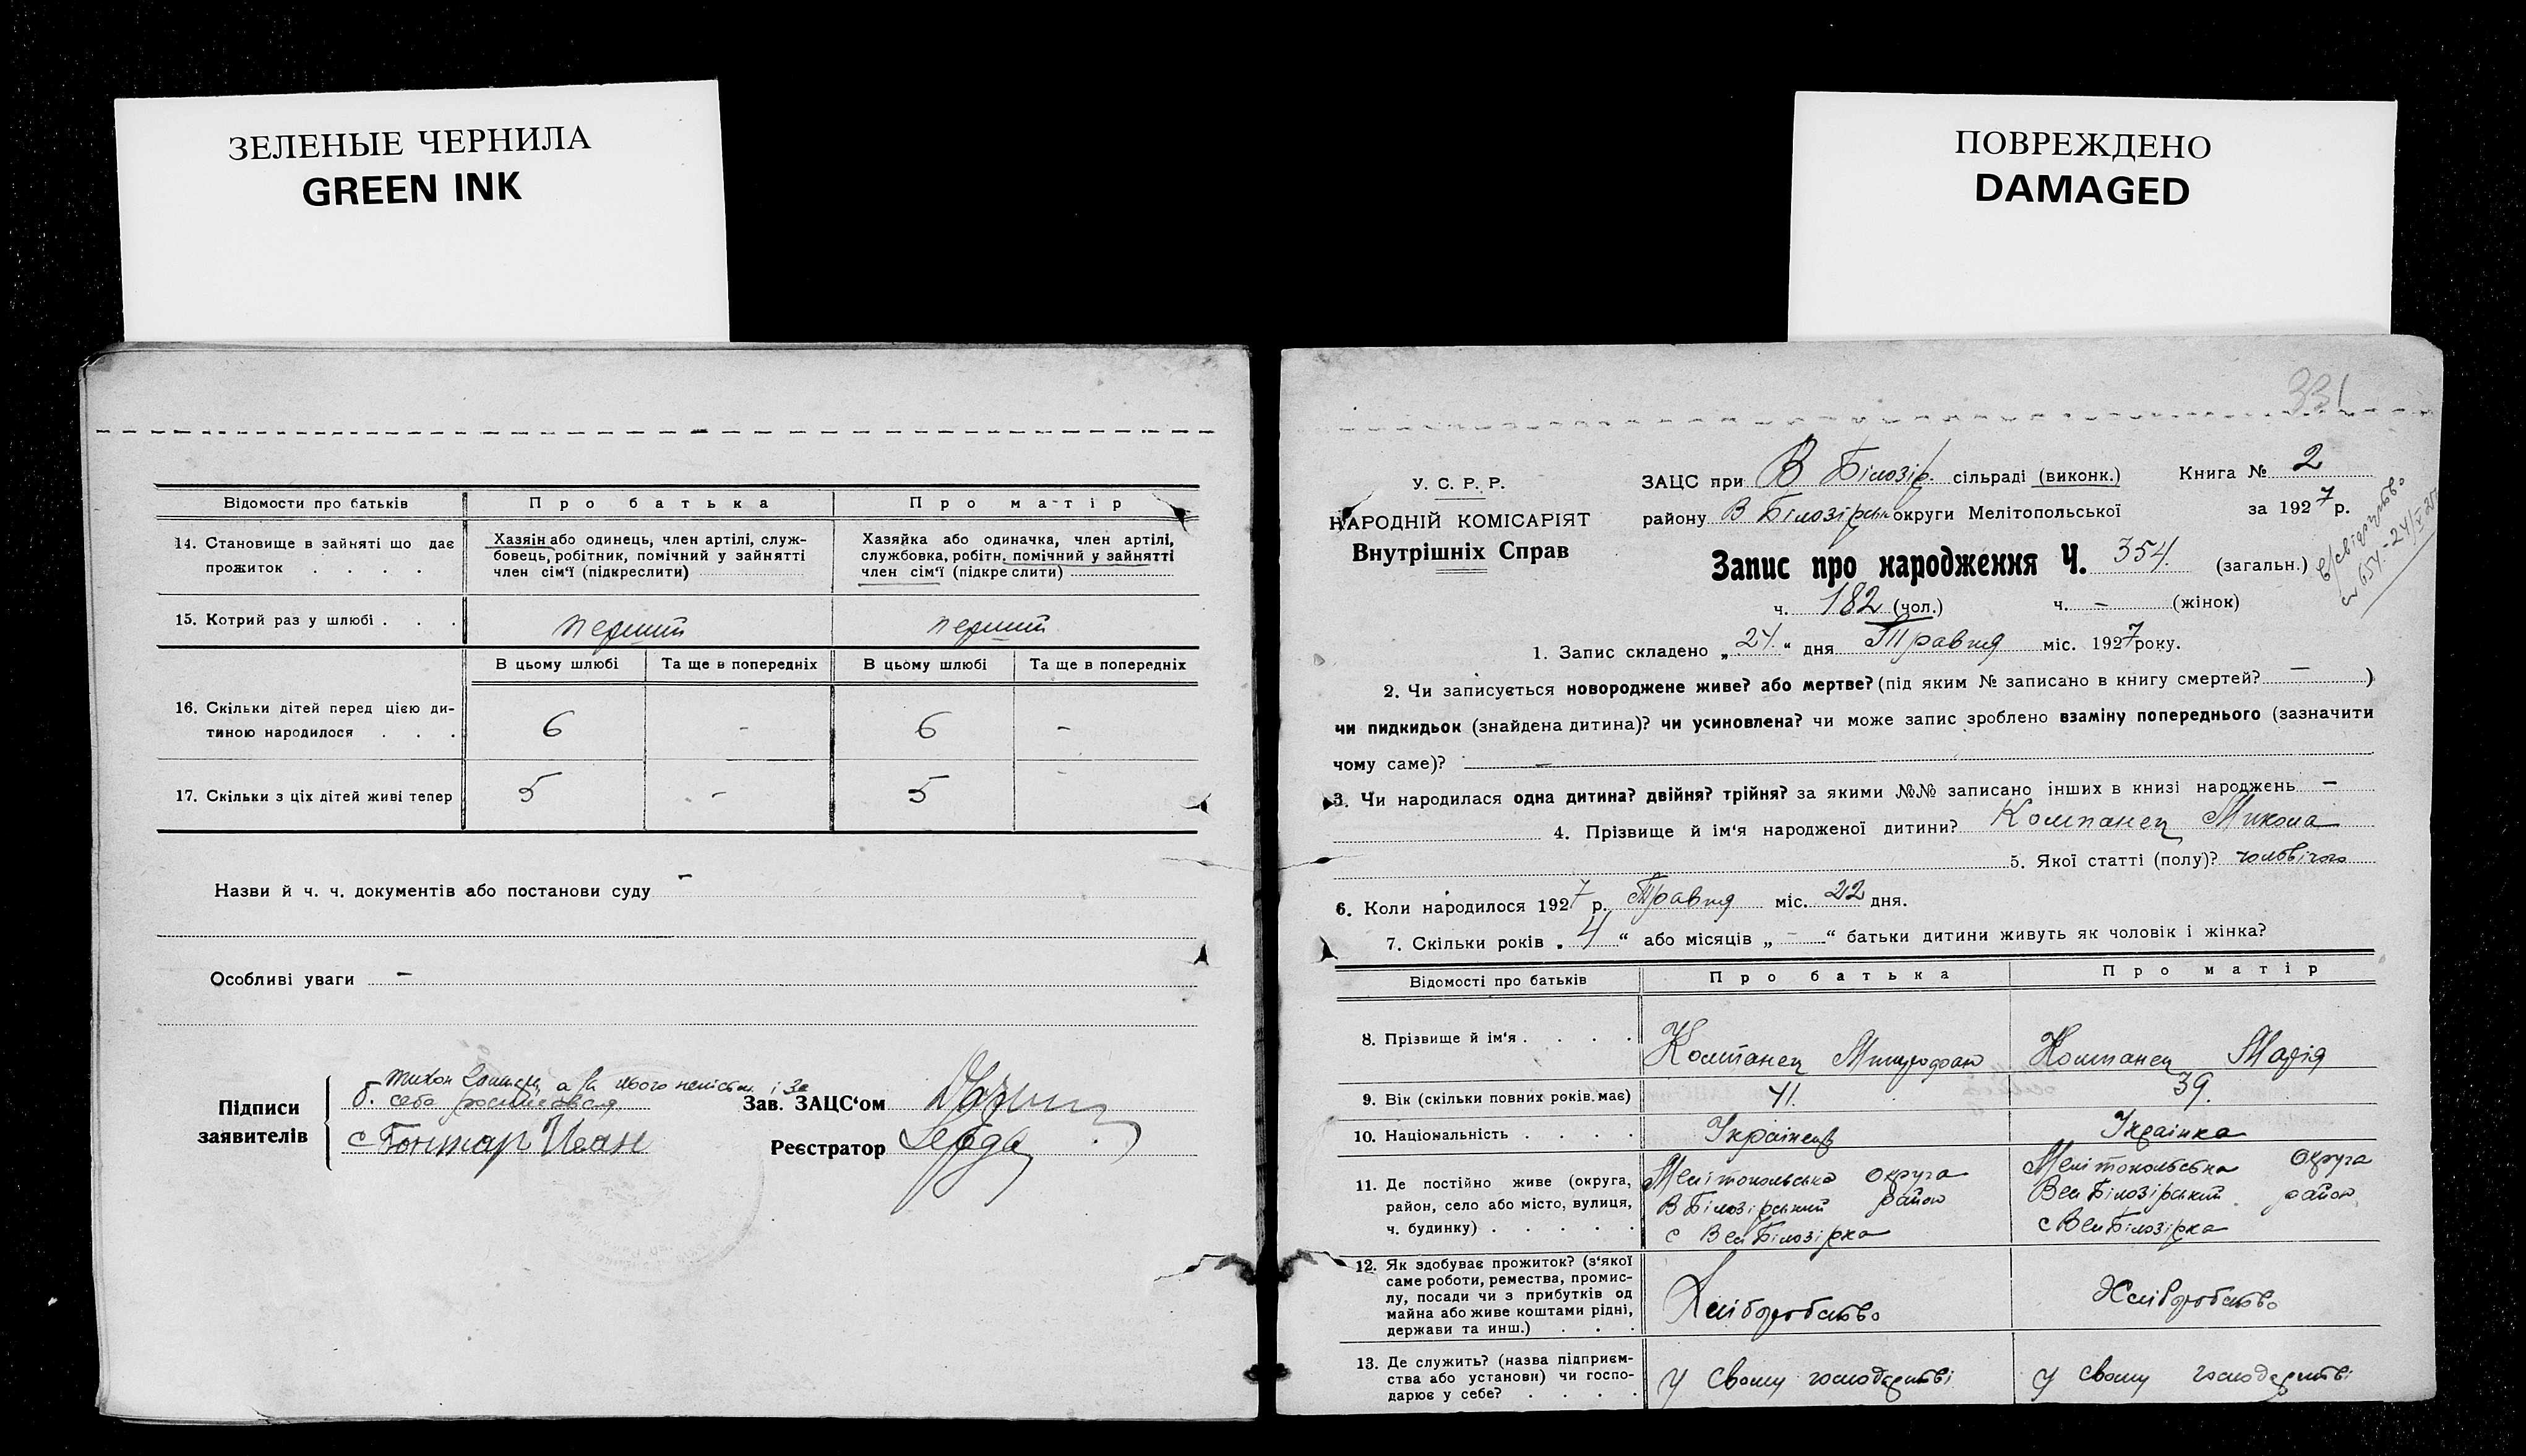 ЗЕЛЕНЫЕ ЧЕРНИЛА
GREEN INK
ПОВРЕЖДЕНО
DAMAGED
Відомости про батьків
Про батька
Про матір
14. Становище в зайняті що дає прожиток . . . .
Хазяін або одинець, член артілі, служ-
бовець, робітник, помічний у зайнятті
член сім'ї (підкреслити)
Хазяйка або одиначка, член артілі,
службовка, робітн. помічний у зайнятті
член сім'ї (підкреслити)
15. Котрий раз у шлюбі . . .
перший
перший
В цьому шлюбі
Та ще в попередніх
В цьому шлюбі
Та ще в попередніх
16. Скільки дітей перед цією ди-
тиною народилося . . .
6 - 6 -
17. Скільки з ціх дітей живі тепер
5 - 5
Назви й ч. ч. документів або постанови суду -
Особливі уваги -
Підписи
заявителів
б. себа росписався
с Гонтар Іван
Зав. ЗАЦС'ом
Реєстратор Середа
331
У. С. Р. Р.
НАРОДНІЙ КОМІСАРІЯТ
Внутрішніх Справ
ЗАЦС при В Білозір. сільраді (виконк.)
Книга № 2
району В Білозірськ округи Мелітопольської
за 1927 р.
Запис про народження Ч. 354. (загальн.)
ч. 182 (чол.) ч. - (жінок)
1. Запис складено „24." дня Травня міс. 1927 року.
2. Чи записується новороджене живе? або мертве? (під яким № записано в книгу смертей? - )
чи пидкидьок (знайдена дитина)? чи усиновлена? чи може запис зроблено взаміну попереднього (зазначити
чому саме)? -
3. Чи народилася одна дитина? двійня? трійня? за якими №№ записано інших в книзі народжень -
4. Прізвище й ім'я народженої дитини? Компанец Микола
5. Якої статті (полу)? чоловічого
6. Коли народилося 1927 р. Травня міс. 22 дня.
7. Скільки років „4" або місяців „-" батьки дитини живуть як чоловік і жінка?
Відомості про батьків
Про батька
Про матір
8. Прізвище й ім'я . . . .
Компанец Митрофан
Компанец Марія
9. Вік (скільки повних років має)
41.
39.
10. Національність . . . .
Українець
Українка
11. Де постійно живе (округа,
район, село або місто, вулиця,
ч. будинку) . . . . .
Мелітопольська округа
В Білозірський район
с Вел Білозірка
Мелітопольська округа
Вел Білозірський район
с Вел Білозірка
12. Як здобуває прожиток? (з'якої
саме роботи, ремества, промис-
лу, посади чи з прибутків од
майна або живе коштами рідні,
держави та инш.) . . .
Хліборобство
Хліборобство
13. Де служить? (назва підприєм-
ства або установи) чи госпо-
дарює у себе? . . . .
У своему господарстві
У своему господарстві